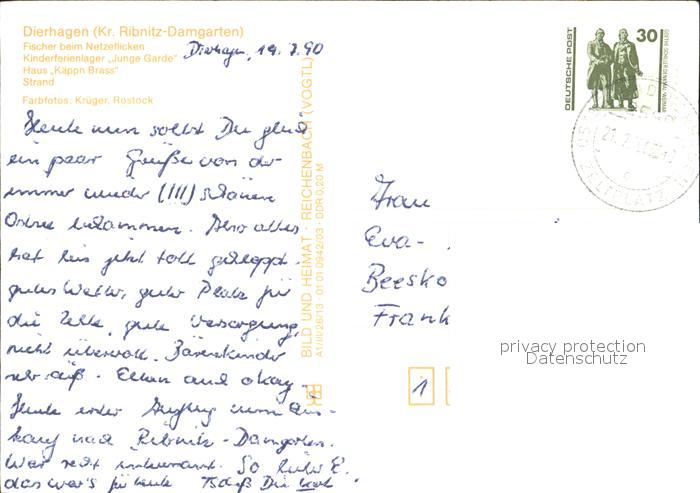 Dierhagen (Kr. Ribnitz-Damgarten)
Fischer beim Netzeflicken
Kinderferienlager „Junge Garde"
Haus „Käppn Brass"
Strand
Farbfotos: Krüger, Rostock
Dierhagen, 19.7.90
Heute nun sollst Du
ein paar Grüße von der
immer wieder (!!!) schönen
Ostsee bekommen. Also alles
hat bis jetzt toll geklappt.
gutes Wetter, guter Platz für
die Zelte, gute Versorgung,
nicht übervoll.
Eltern auch okay.
Heute erster Ausflug zum Ein-
kauf nach Ribnitz-Damgarten.
War recht
das war's für heute Tschüß Die
BILD UND HEIMAT · REICHENBACH (VOGTL)
A1/III/26/13 · 01 01 0942/03 · DDR 0,20 M
DEUTSCHE POST
30
GOETHE-SCHILLER-DENKMAL WEIMAR
ZELTPLATZ
Frau
Eva-
Beesko
Frank
1
privacy protection
Datenschutz